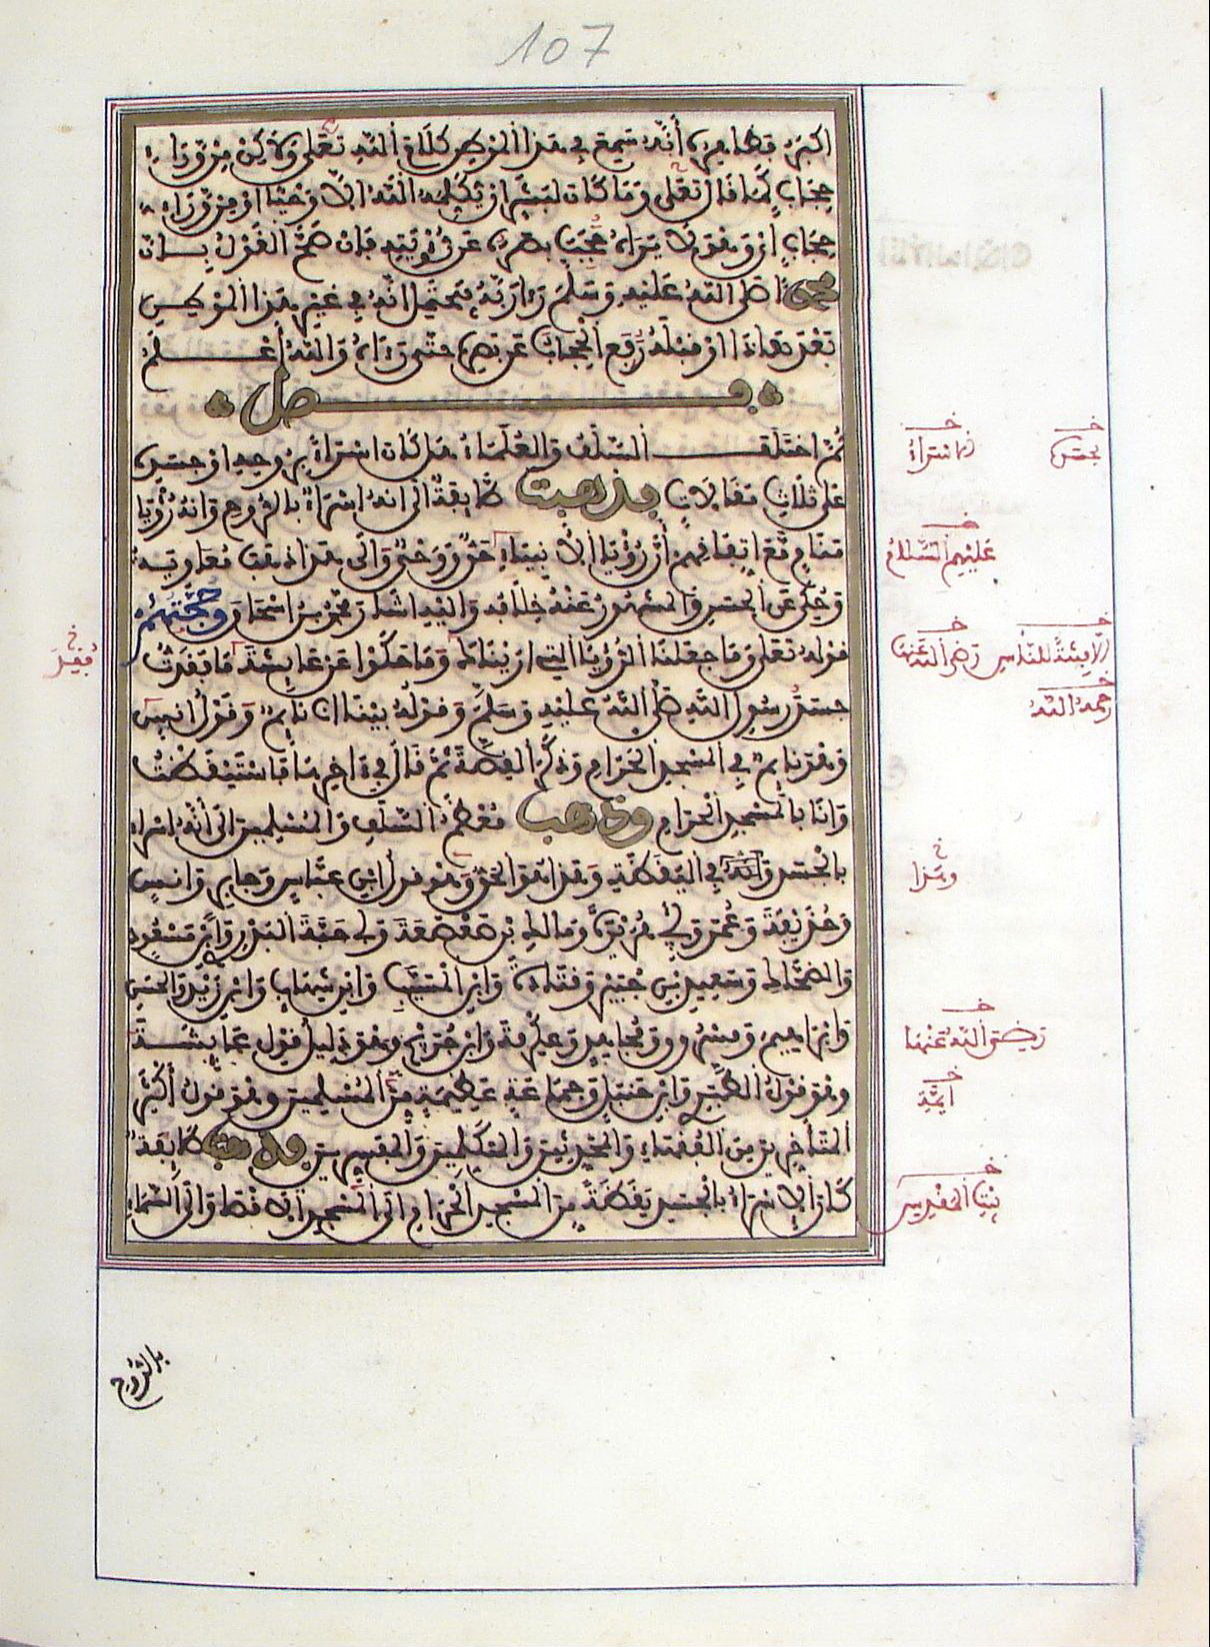 107
اكبر فظاهره أنه سمع في هذا الموطن كلام الله تعلى ولاكن من وراء
حجاب كما قال تعلى وما كان لبشر ان يكلمه الله الا وحيا او من وراء
حجاب أي وهو لا يراه حجب بصره عن رؤيته فان صح القول بان
محمدا صلى الله عليه وسلم رءا ربه فيحتمل انه في غير هذا الموطن
بعد هاذا او قبله رفع الحجاب عن بصره حتى رءاه والله أعلم
فصل
ثم اختلف السلف والعلماء هل كان اسراؤه بروحه او جسده
على ثلاث مقالات فذهبت طائفة الى انه اسراء بالروح وانه رؤيا
منام مع اتفاقهم أن رؤيا الانبياء حق ووحي والى هذا ذهب معاوية
وحكي عن الحسن والمشهور عنه خلافه واليه اشار محمد بن اسحاق وحجتهم
قوله تعلى وما جعلنا الرؤيا التي اريناك وما حكوا عن عايشة ما فقدت
جسد رسول الله صلى الله عليه وسلم وقوله بينا انا نايم وقول انس
وهو نايم في المسجد الحرام وذكر القصة ثم قال في ءاخرها فاستيقظت
وانا بالمسجد الحرام وذهب معظم السلف والمسلمين الى أنه اسراء
بالجسد وانه في اليقظة وهذا هو الحق وهو قول ابن عباس وجابر وانس
وحذيفة وعمر وابي هريرة ومالك بن صعصعة وابي حبة البدري وابن مسعود
والضحاك وسعيد بن جبير وقتادة وابن المسيب وابن شهاب وابن زيد والحسن
وابراهيم ومسروق ومجاهد وعكرمة وابن جريج وهو دليل قول عايشة
وهو قول الطبري وابن حنبل وجماعة عظيمة من المسلمين وهو قول أكثر
المتأخرين من الفقهاء والمحدثين والمتكلمين والمفسرين فذهبت طايفة
كان الاسراء بالجسد يقظة من المسجد الحرام الى المسجد الاقصا والى السماء
بالروح
خ
الاسراء
خ
عليهم السلام
خ
الا فتنة للناس
خ
رضي الله عنها
خ
رحمه الله
خ
فقد
خ
وهذا
خ
رضي الله عنها
خ
ايمة
خ
بيت المقدس